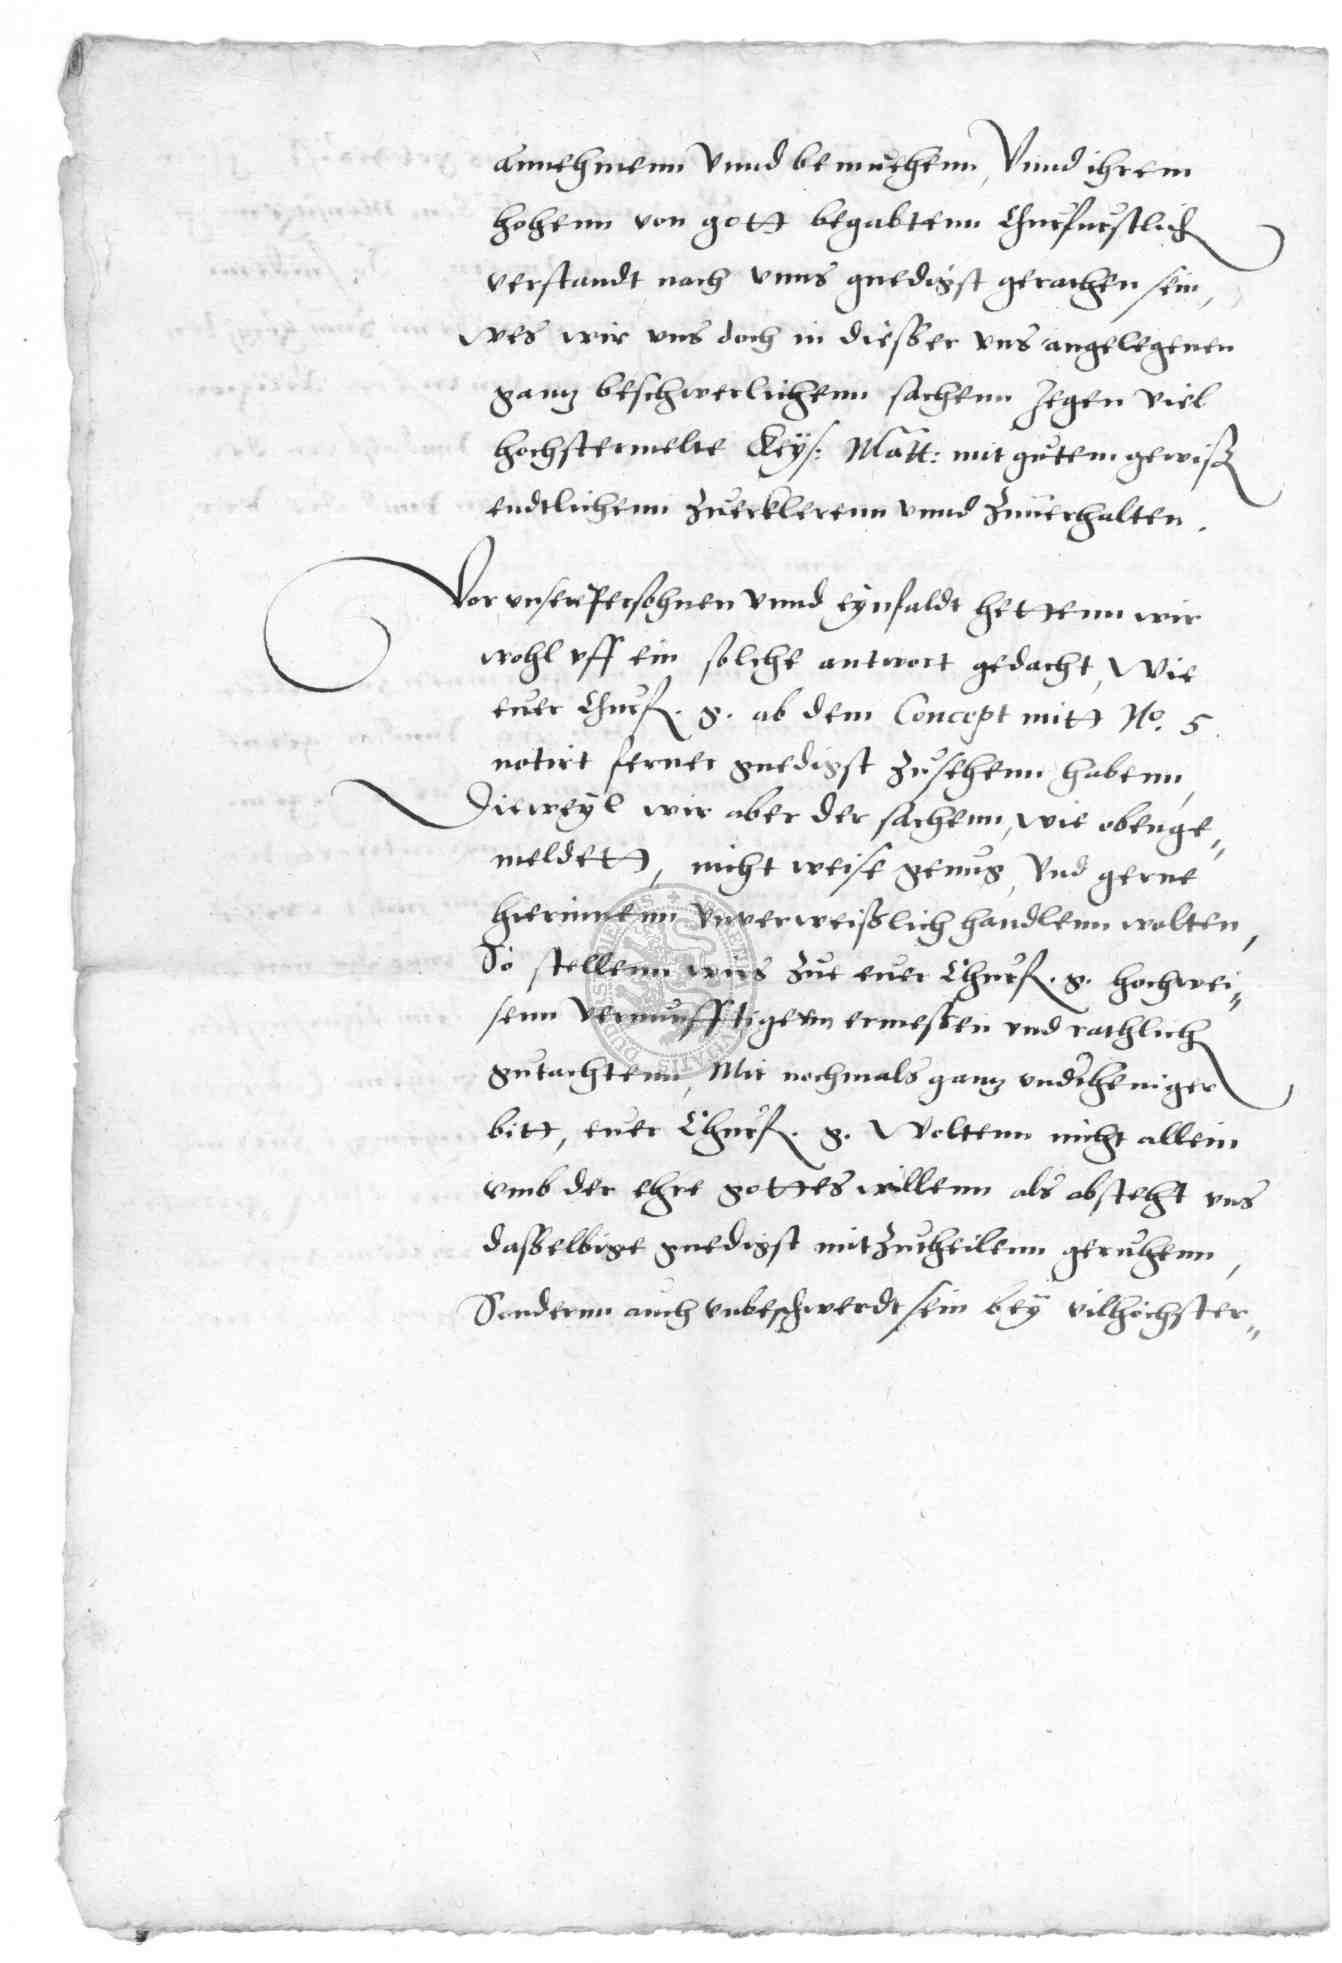 annehmenn vnnd bemuehenn, Vnnd ihrem
hohenn von gott begabtenn Churfurstlich
verstandt nach vnns gnedigst gerathen sein,
Wes wir vns doch in diesser vns angelegenen
gantz beschwerlichenn sachenn Jegen viel
hochstermelte Keys: Matt: mit gutem gewiss
endtlichenn Zuerklerenn vnnd Zuuerhalten.
Vor vnsere Persohnen vnnd eynfaldt hettenn wir
wohl vff ein solche antwort gedacht, Wie
euer Churf. g. ab dem Concept mitt No. 5
notirt ferner gnedigst Zusehenn habenn,
Dieweyl wir aber der sachenn, wie obenge„
meldett, nicht weise genug, Vnd gerne
hierinnenn vnverweißlich handlenn wolten,
So stellenn wirs Zue euer Churf. g. hochwei„
senn vernunfftigenn ermessen vnd rathlich
gutachtenn, Mit nochmals gantz vndtheniger
bitt, euer Churf. g. Woltenn nicht allein
vmb der ehre gottes willenn als absteht vns
dasselbige gnedigst mitZutheilenn geruhenn,
Sondernn auch vnbeschwerdt sein bey vilhochster„